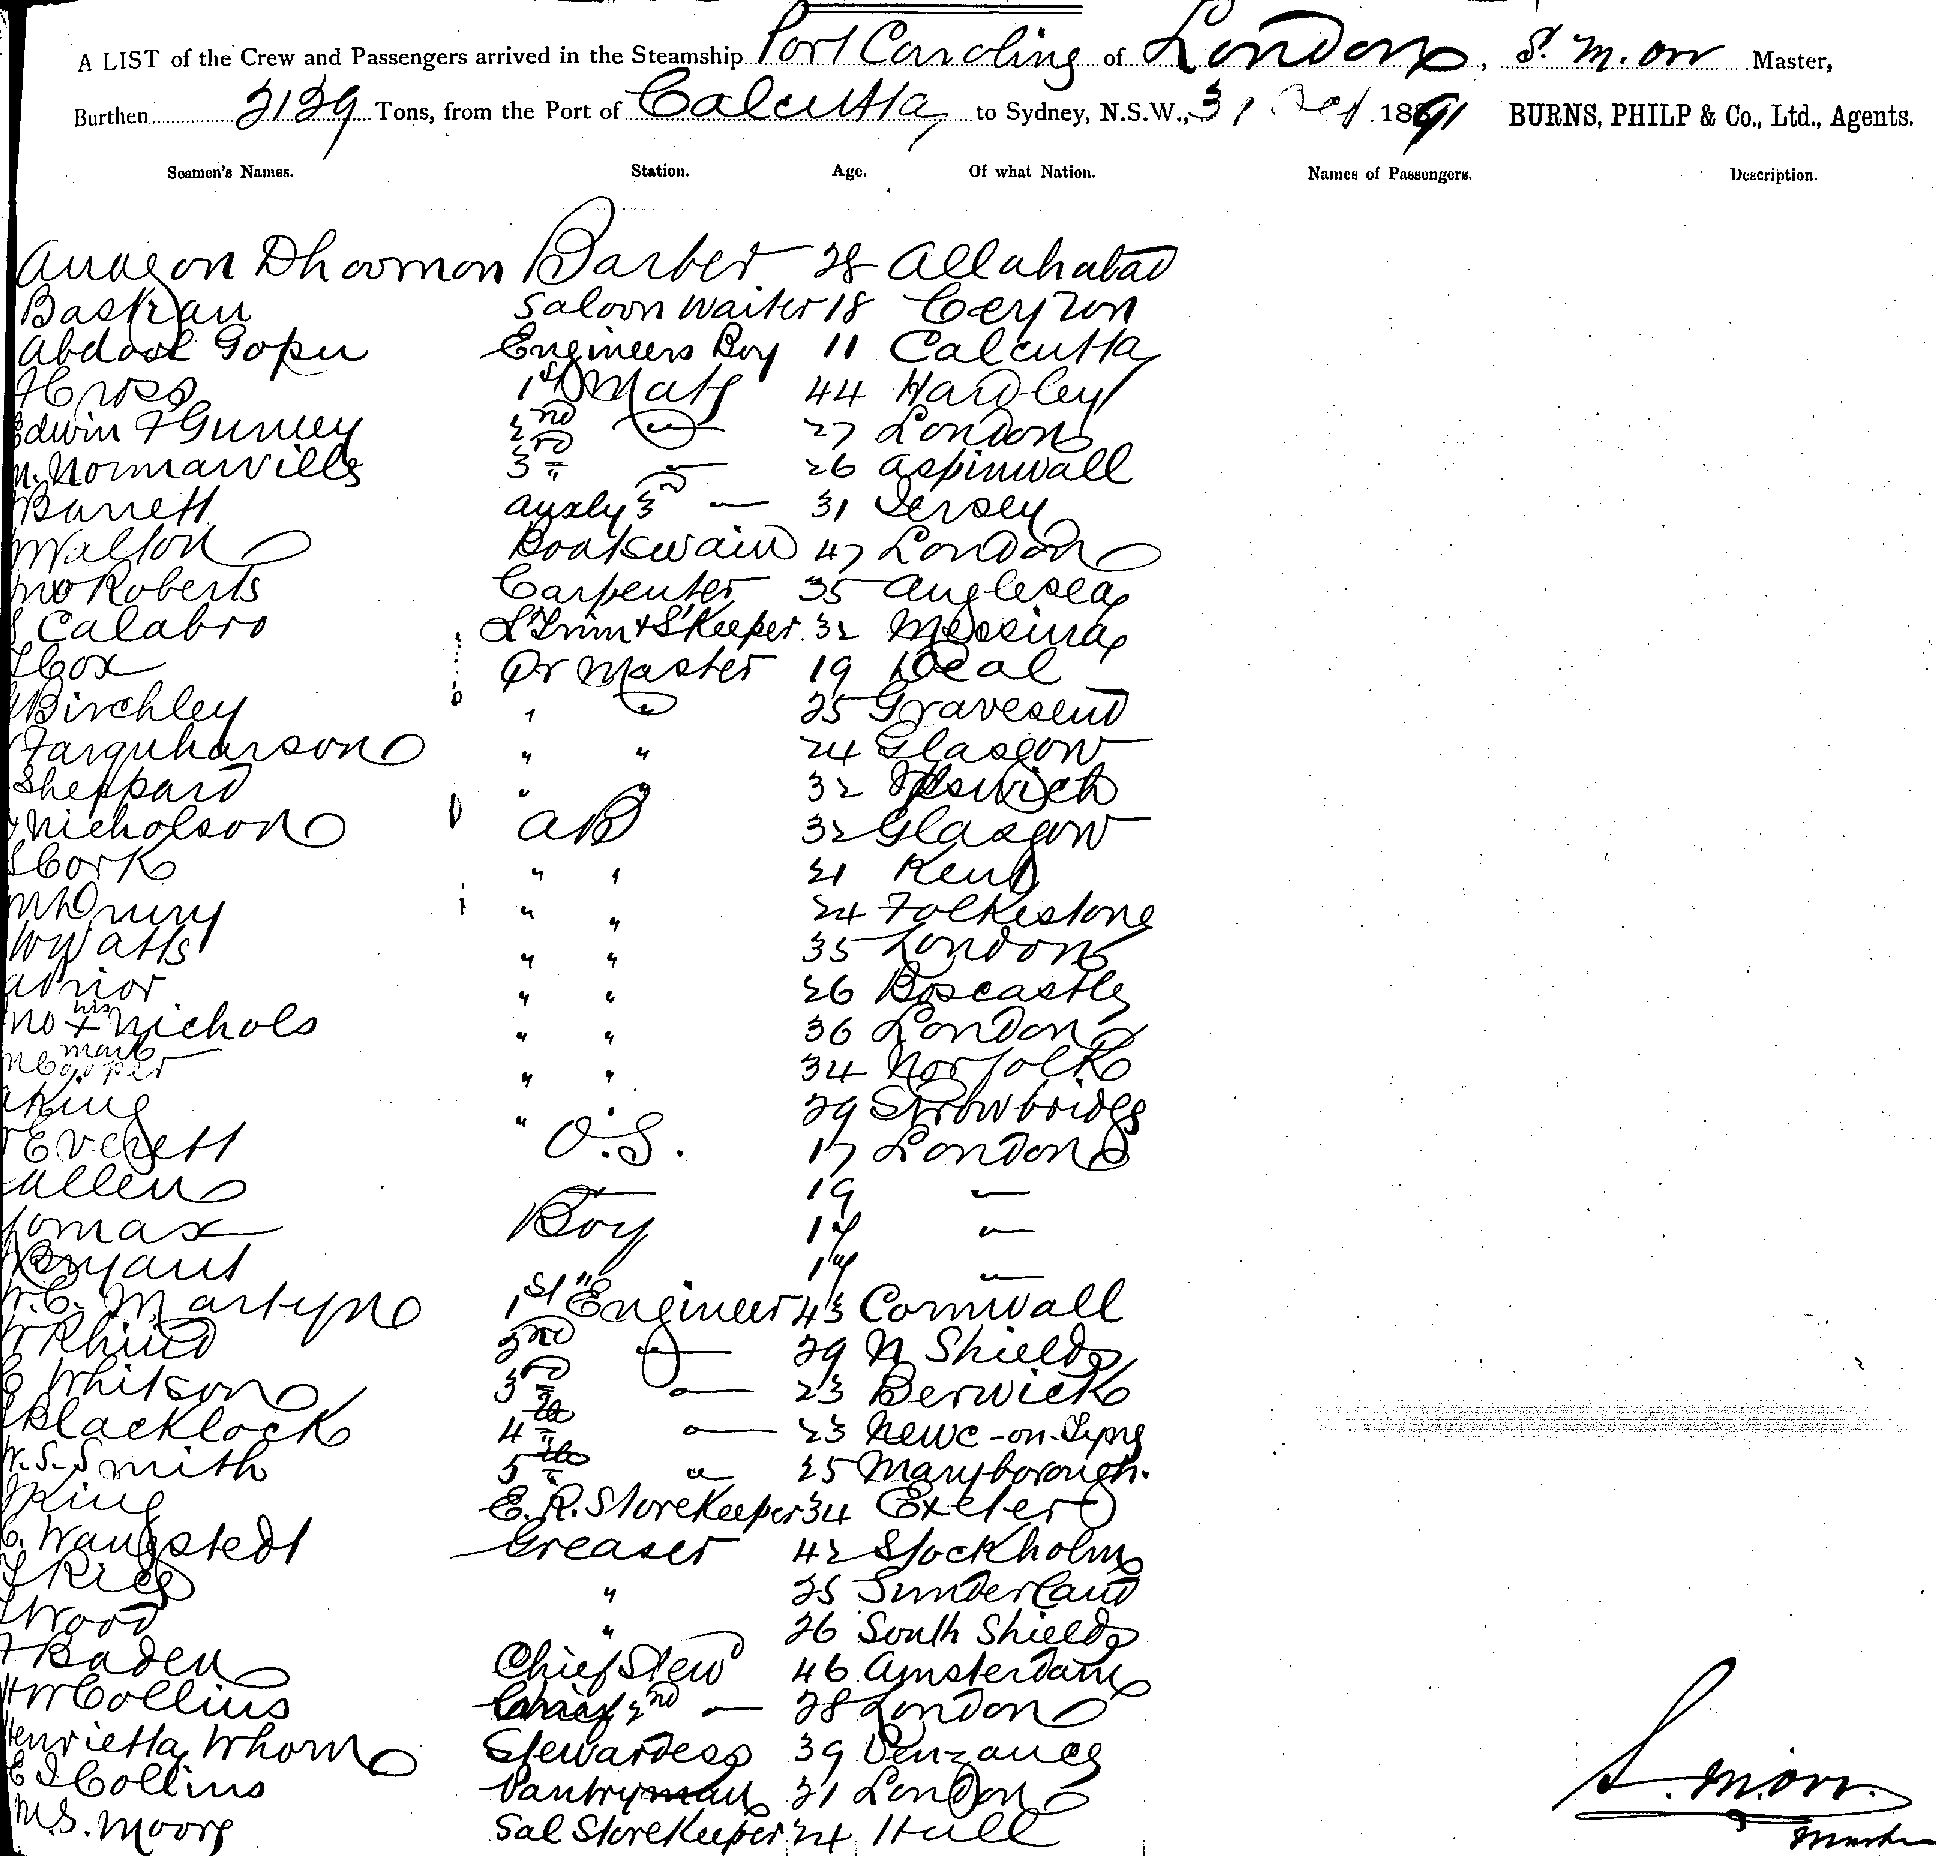 A LIST of the Crew and Passengers arrived in the Steamship Port Caroline of London, S. M. Orr Master,
Burthen 3139 Tons, from the Port of Calcutta to Sydney, N.S.W., 31 Oct 1891 BURNS, PHILP & Co., Ltd., Agents.
Seamen's Names. Station. Age. Of what Nation. Names of Passengers. Description.
Dhoomon Barber 28 Allahabad
Saloon Waiter 18 Ceylon
Abdool Gopu Engineers Boy 11 Calcutta
Cross 1st Mate 44 Hardley
Edwin F Gurney 2nd " 27 London
Normanville 3rd " 26 Aspinwall
Barrett Auxly 3rd — 31 Jersey
Walton Boatswain 47 London
Jno Roberts Carpenter 35 Anglesea
Calabro L Trim & S Keeper 32 Messina
Cox Qr Master 19 Deal
Birchley " " 25 Gravesend
Farquharson " " 24 Glasgow
Sheppard " " 32 Ipswich
Nicholson AB 32 Glasgow
Cork " " 21 Kent
Drury " " 24 Folkestone
Watts " " 35 London
Prior " " 26 Boscastle
Jno his x mark Nichols " " 36 London
Cooper " " 34 Norfolk
King " " 29 Trowbridge
Everett O.S. 17 London
Allen — 19 "
Lomax Boy 17 "
Bryant 17 "
W. C. Martyn 1st Engineer 43 Cornwall
Rhind 2nd " 29 N Shields
Whitson 3rd " 23 Berwick
Blacklock 4th " 23 Newc-on-Tyne
W. S. Smith 5th " 25 Maryborough.
King E. R. Storekeeper 34 Exeter
C. Wangstedt Greaser 42 Stockholm
Rice " 25 Sunderland
Wood " 26 South Shields
Baden Chief Stew 46 Amsterdam
H W Collins 2nd — 28 London
Henrietta Whorn Stewardess 39 Penzance
E J Collins Pantryman 21 London
M. S. Moore Sal Storekeeper 24 Hull
S. M. Orr.
Master